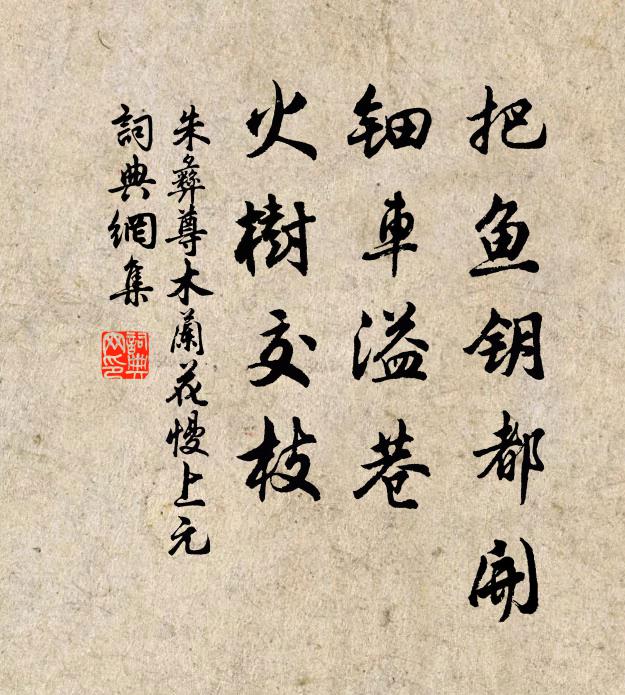 把鱼钥都開
鈿車溢巷
火樹交枝
朱彝尊木蘭花慢上元
詞典網集
詞典網印